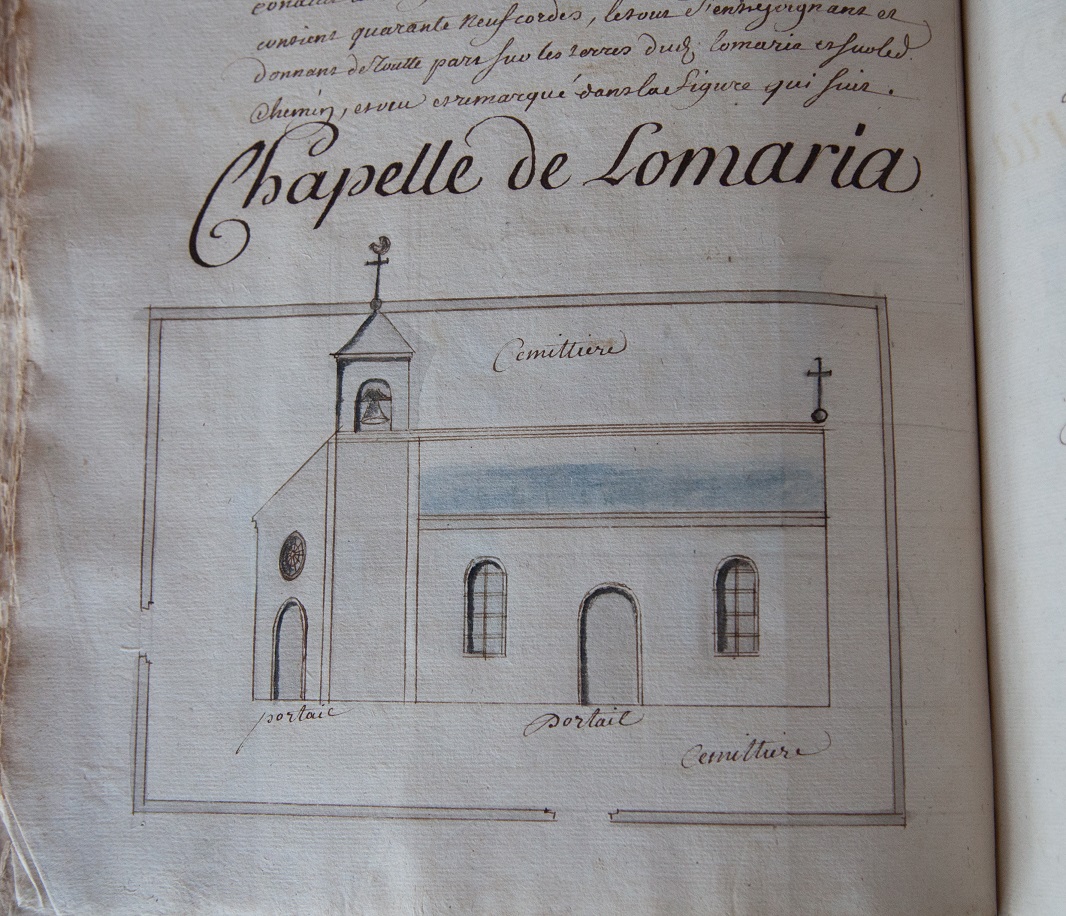 contient quarante neuf cordes, le tout s'entrejoignant et
donnant de toutte part sur les terres dud. Lomaria et sur led.
Chemin, et veu et remarqué dans la figure qui suit.
Chapelle de Lomaria
Cemittiere
portail
portail
Cemittiere